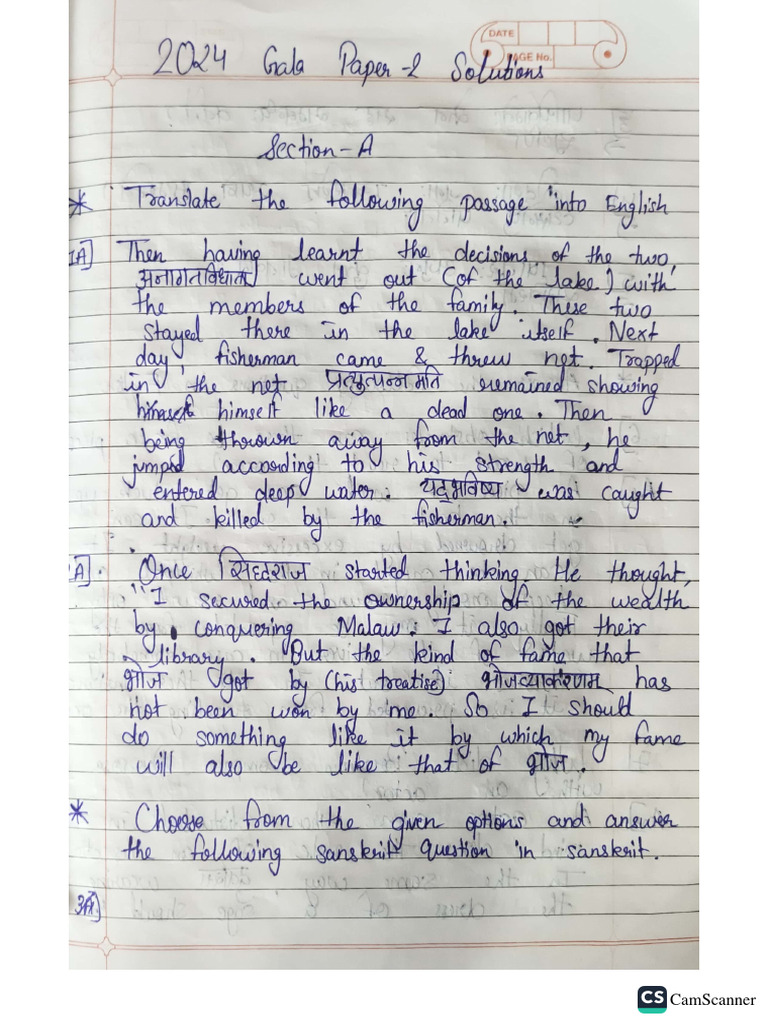 DATE
PAGE No.
2024 Gala Paper-2 Solutions
Section-A
* Translate the following passage into English
1A] Then having learnt the decisions of the two,
अनागतविधाता went out (of the lake) with
the members of the family. These two
stayed there in the lake itself. Next
day, fisherman came & threw net. Trapped
in the net प्रत्युत्पन्नमति remained showing
himself like a dead one. Then
being thrown away from the net, he
jumped according to his strength and
entered deep water. यद्भविष्य was caught
and killed by the fisherman.
A]. Once सिद्धराज started thinking. He thought,
"I secured the ownership of the wealth
by conquering Malaw. I also got their
library. But the kind of fame that
भोज got by (his treatise) भोजव्याकरणम् has
not been won by me. So I should
do something like it by which my fame
will also be like that of भोज.
* Choose from the given options and answer
the following sanskrit question in sanskrit.
3A]
CS CamScanner